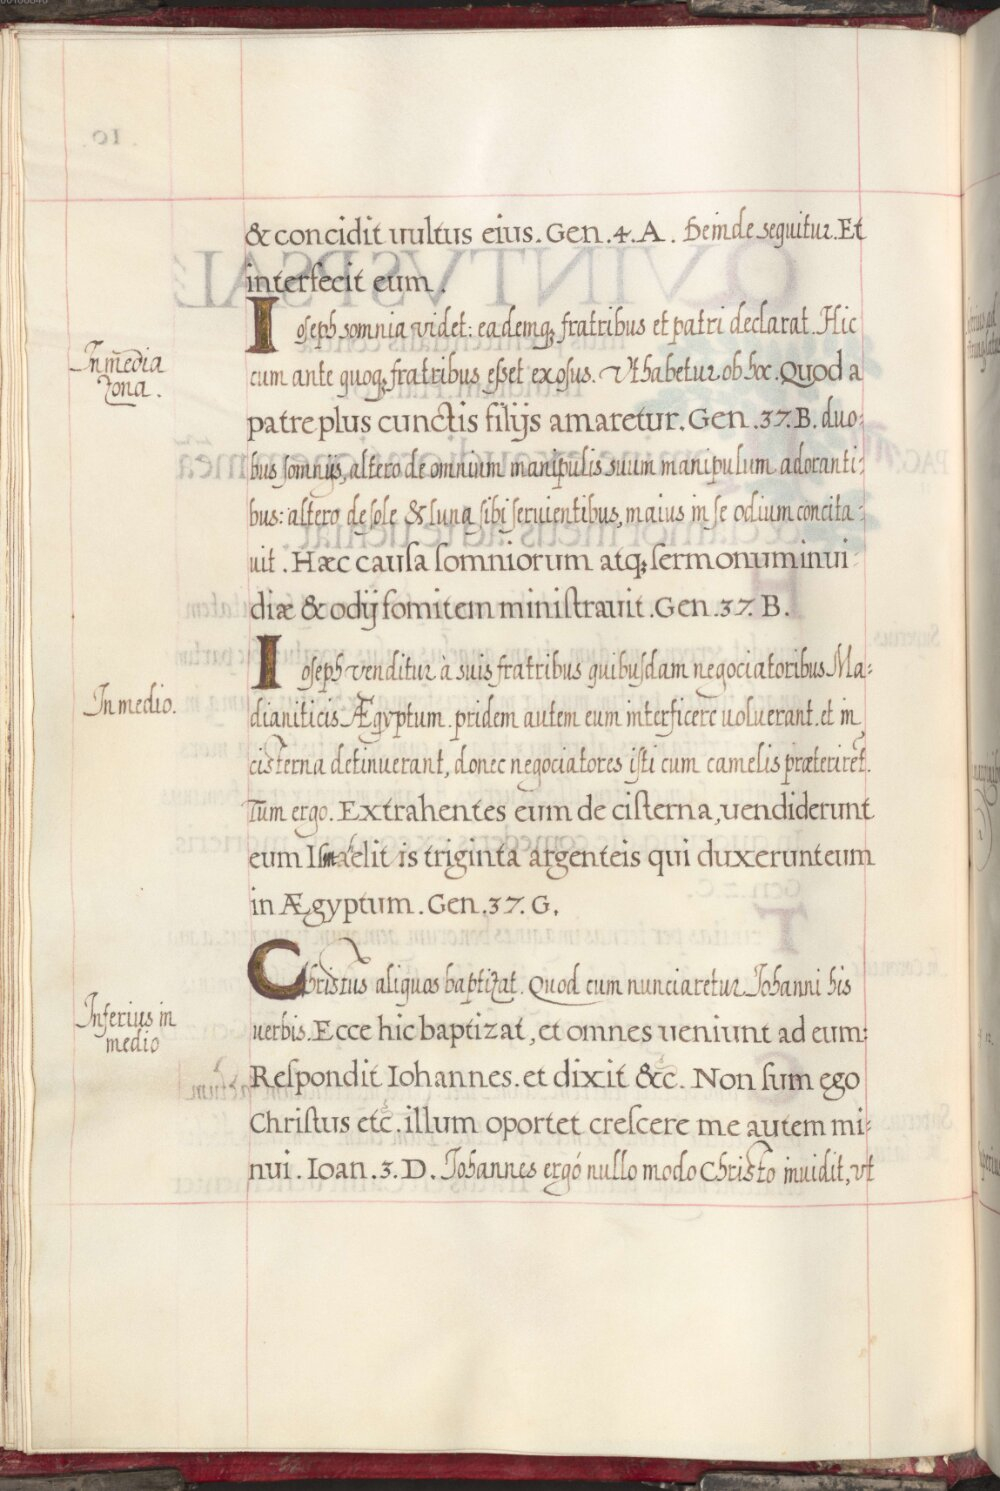 & concidit uultus eius. Gen. 4. A. Deinde sequitur. Et
interfecit eum.
In media
zona.
Ioseph somnia videt: eademq; fratribus et patri declarat. Hic
cum ante quoq; fratribus esset exosus. Vt habetur ob hoc. Quod a
patre plus cunctis filijs amaretur. Gen. 37. B. duo-
bus somnijs, altero de omnium manipulis suum manipulum adoranti-
bus: altero de sole & luna sibi seruientibus, maius in se odium concita-
uit. Hæc causa somniorum atq; sermonum inui-
diæ & odij fomitem ministrauit. Gen. 37. B.
In medio.
Ioseph venditur à suis fratribus quibusdam negociatoribus Ma-
dianiticis Ægyptum. pridem autem eum interficere uoluerant. et in
cisterna detinuerant, donec negociatores isti cum camelis præteriret.
Tum ergo. Extrahentes eum de cisterna, uendiderunt
eum Ismaelitis triginta argenteis qui duxerunt eum
in Ægyptum. Gen. 37. G.
Inferius in
medio
Christus aliquos baptizat. Quod cum nunciaretur Iohanni his
uerbis. Ecce hic baptizat, et omnes ueniunt ad eum:
Respondit Iohannes. et dixit &c. Non sum ego
Christus etc. illum oportet crescere me autem mi-
nui. Ioan. 3. D. Iohannes ergó nullo modo Christo inuidit, vt